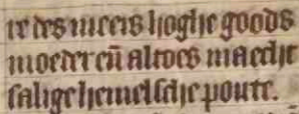 re des meeis hoghe goods
moeder eñ altoes maecht
salige hemelsche poute.